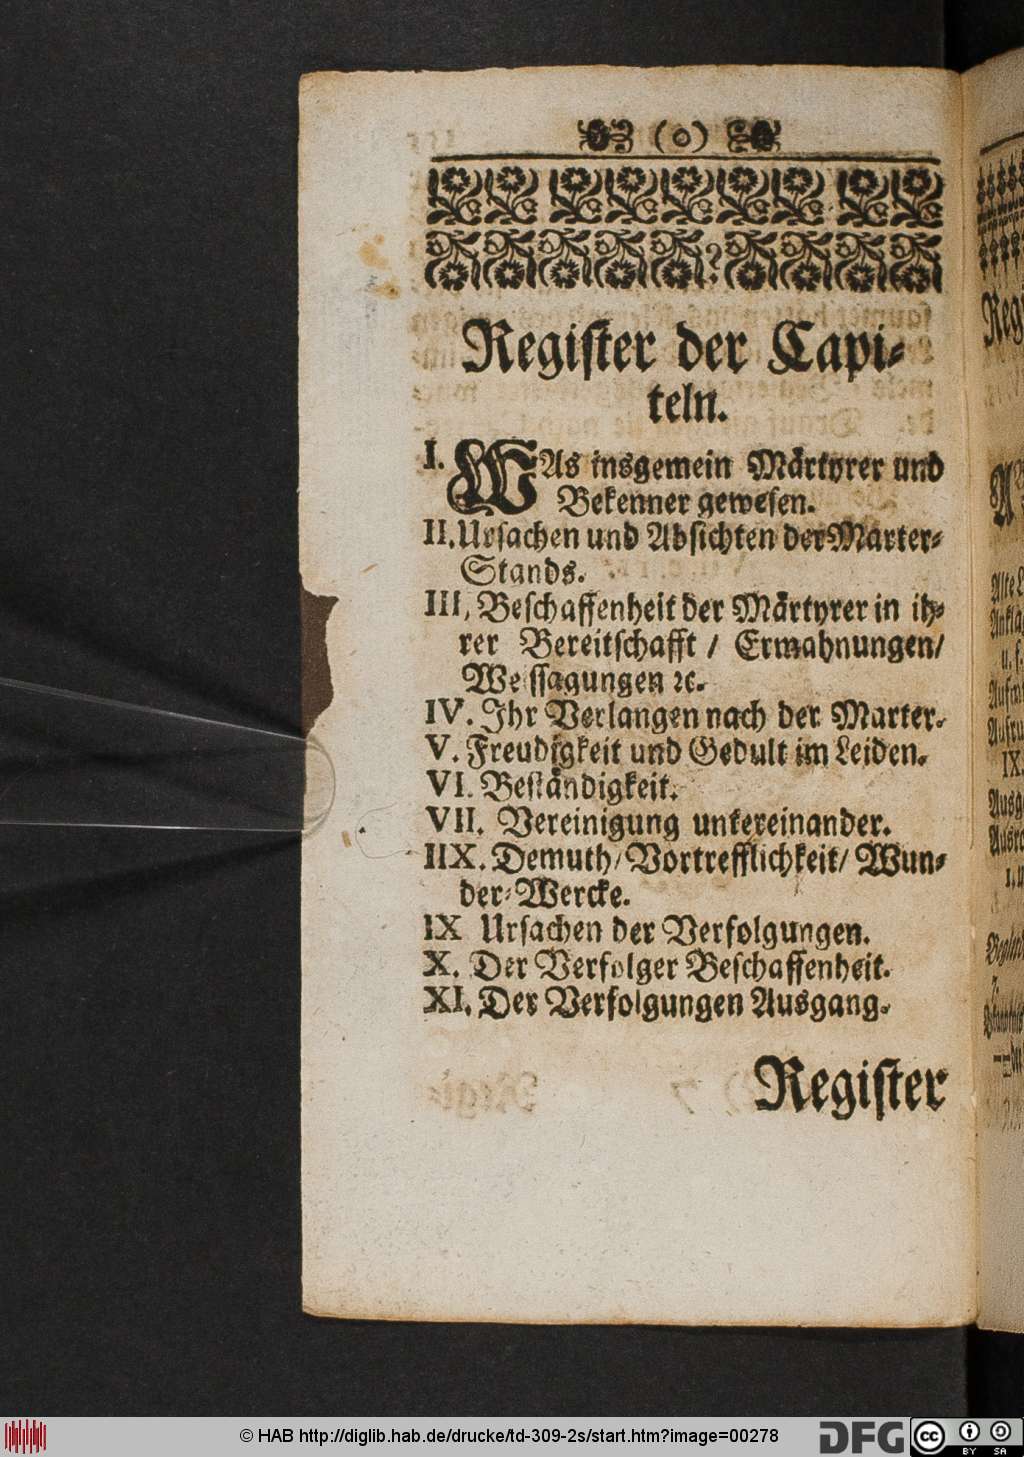 (o)
Register der Capi-
teln.
I. WAs insgemein Märtyrer und
Bekenner gewesen.
II. Ursachen und Absichten der Marter-
Stands.
III, Beschaffenheit der Märtyrer in ih-
rer Bereitschafft / Ermahnungen/
Weissagungen ꝛc.
IV. Ihr Verlangen nach der Marter.
V. Freudigkeit und Gedult im Leiden.
VI. Beständigkeit.
VII. Vereinigung untereinander.
IIX. Demuth/ Vortrefflichkeit/ Wun-
der-Wercke.
IX Ursachen der Verfolgungen.
X. Der Verfolger Beschaffenheit.
XI. Der Verfolgungen Ausgang.
Register
© HAB http://diglib.hab.de/drucke/td-309-2s/start.htm?image=00278
DFG
cc BY SA